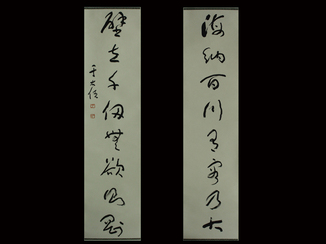 海纳百川有容乃大
壁立千仞無欲則剛
于右任